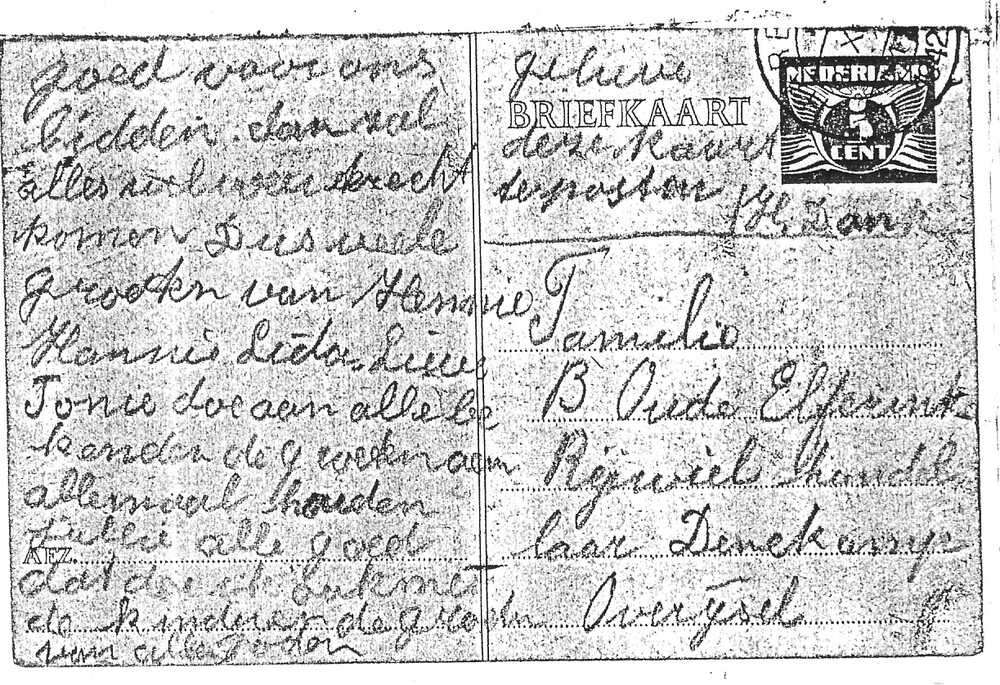 goed voor ons
bidden. dan zal
alles wel weer terecht
komen Dus vele
groeten van Hennie
Hannie Lida. Lieve
Tonie doe aan alle be
kenden de groeten aan
allemaal houden
jullie alle goed
AFZ.
dat doe ik ook met
de kinderen de groeten
van alle
gelieve
BRIEFKAART
deze kaart
te posten
H. Dank
NEDERLAND
5
CENT
Familie
B Oude Elferink
Rijwiel handel
laar Denekamp
Overijsel